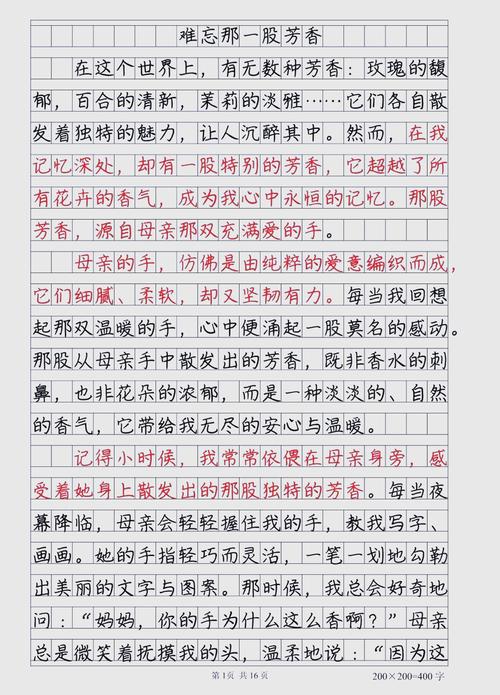 难忘那一股芳香
在这个世界上，有无数种芳香：玫瑰的馥
郁，百合的清新，茉莉的淡雅……它们各自散
发着独特的魅力，让人沉醉其中。然而，在我
记忆深处，却有一股特别的芳香，它超越了所
有花卉的香气，成为我心中永恒的记忆。那股
芳香，源自母亲那双充满爱的手。
母亲的手，仿佛是由纯粹的爱意编织而成，
它们细腻、柔软，却又坚韧有力。每当我回想
起那双温暖的手，心中便涌起一股莫名的感动。
那股从母亲手中散发出的芳香，既非香水的刺
鼻，也非花朵的浓郁，而是一种淡淡的、自然
的香气，它带给我无尽的安心与温暖。
记得小时候，我常常依偎在母亲身旁，感
受着她身上散发出的那股独特的芳香。每当夜
幕降临，母亲会轻轻握住我的手，教我写字、
画画。她的手指轻巧而灵活，一笔一划地勾勒
出美丽的文字与图案。那时候，我总会好奇地
问：“妈妈，你的手为什么这么香啊？”母亲
总是微笑着抚摸我的头，温柔地说：“因为这
第1页 共16页
200×200=400字